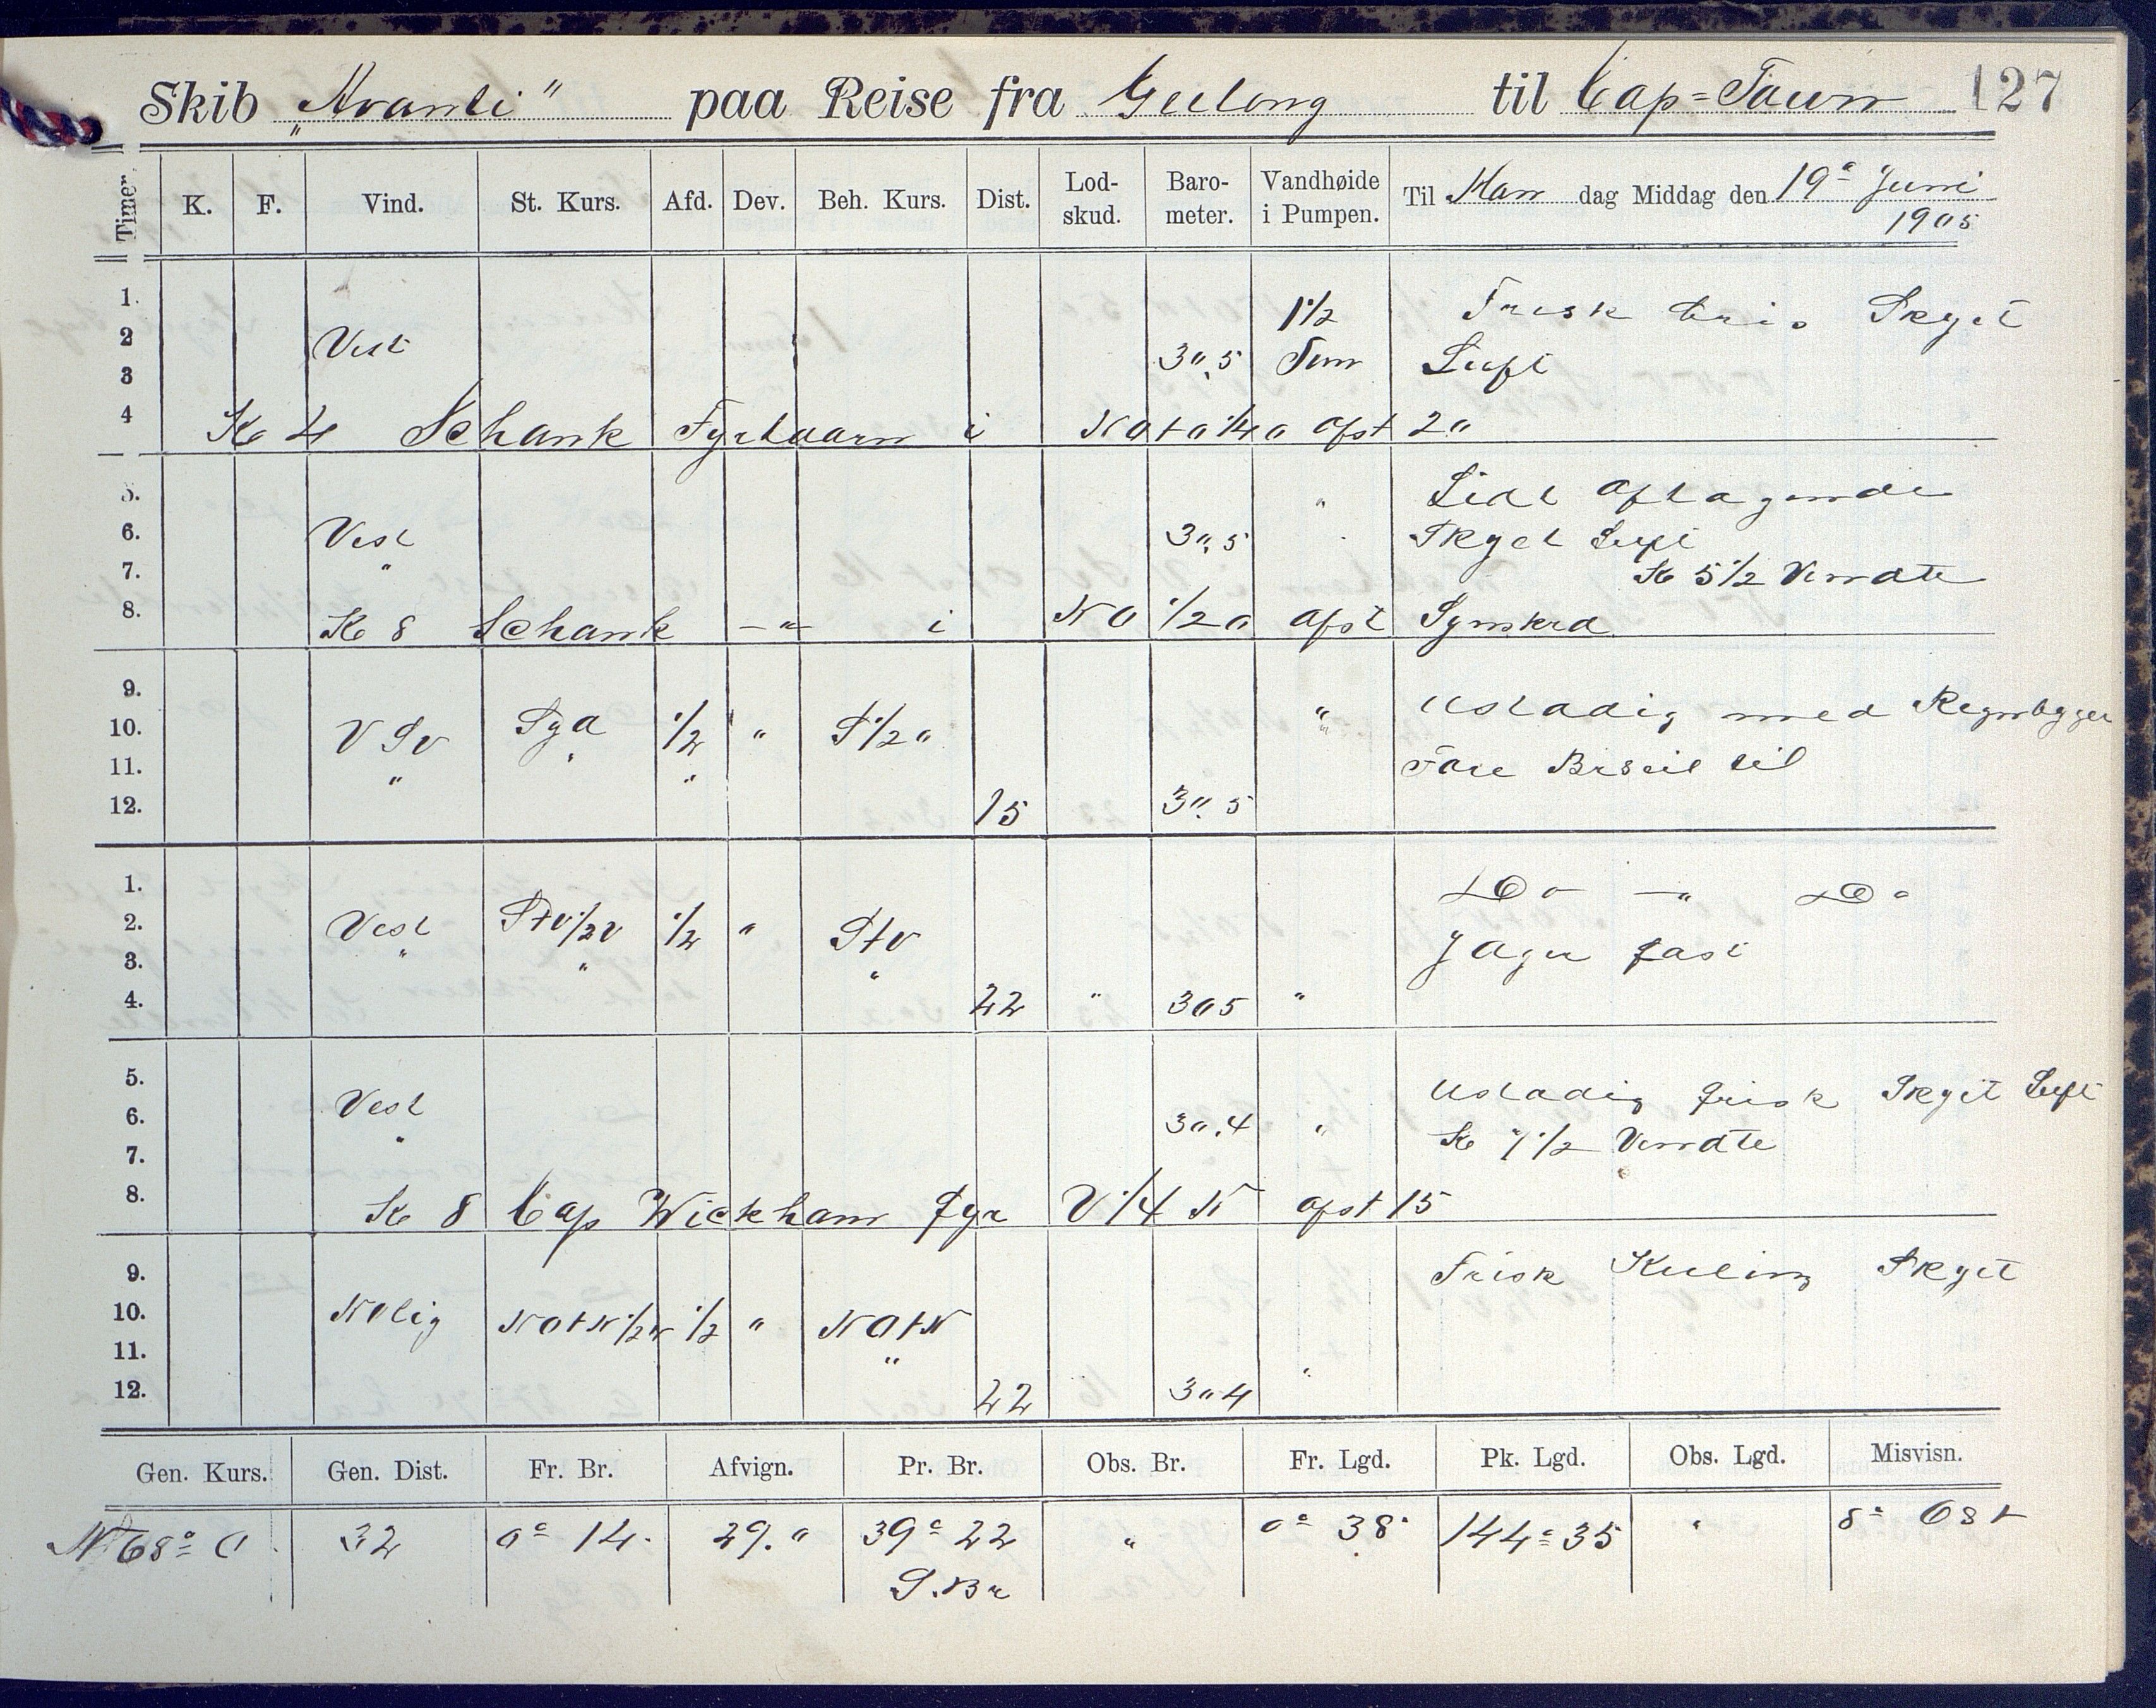 Skib „Avanti" paa Reise fra Geelong til Cap=Town 127
Timer. K. F. Vind. St. Kurs. Afd. Dev. Beh. Kurs. Dist. Lod-skud. Baro-meter. Vandhøide i Pumpen. Til Man dag Middag den 19e Juni
1905
1. 1 1/2 Frisk bris Skyet
2 Vest 30,5 Tom Luft
3
4 Kl 4 Schank Fyrtaarn i NOtO 1/4 O afst 20
5. " Lidt aftagende
6. Vest 30,5 Skyet Luft
7. " Kl 5 1/2 Vendte
8. Kl 8 Schank -"- i NO 1/2 O afst Synskrd
9. " Ustadig med Regnbyger
10. VSV SyO 1/2 " S 1/2 O
11. " " Fore Brseil til
12. 15 30.5
1. Do -" Do
2. Vest StV 1/2 V 1/2 " StV
3. " " " Jager fast
4. 22 " 305 "
5. Ustadig frisk Skyet Luft
6. Vest 30.4 "
7. " Kl 7 1/2 Vendte
8. Kl 8 Cap Wickham Fyr V 1/4 N afst 15
9. Frisk Kuling Skyet
10. NVlig NOtN 1/2 N 1/2 " NOtN
11. "
12. 22 304
Gen. Kurs. Gen. Dist. Fr. Br. Afvign. Pr. Br. Obs. Br. Fr. Lgd. Pk. Lgd. Obs. Lgd. Misvisn.
N 68° O 32 0° 14 29.0 39° 22 " 0° 38' 144° 35 " 8° Ost
S. Br